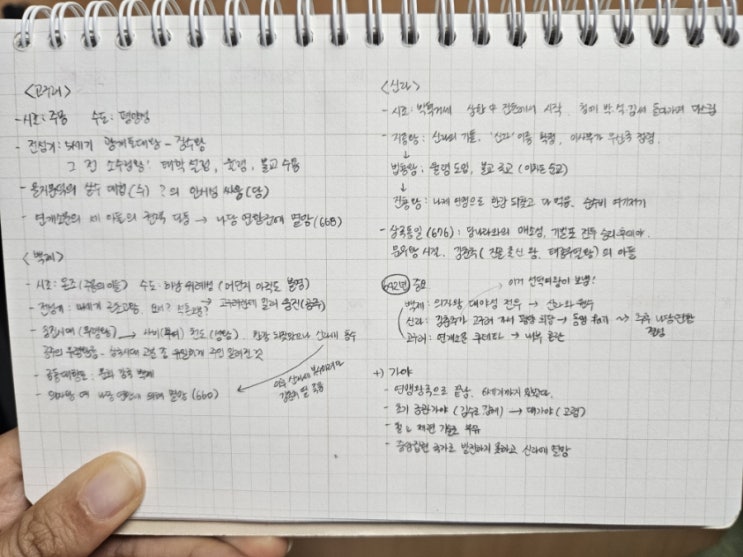 <고구려>
- 시조: 주몽 수도: 평양성
- 전성기: 5세기 광개토대왕 - 장수왕
그 전 소수림왕: 태학 설립, 율령, 불교 수용
- 을지문덕의 살수 대첩(수) ? 의 안시성 싸움(당)
- 연개소문의 세 아들의 권력 다툼 → 나당 연합군에 멸망(668)
<백제>
- 시조: 온조(주몽의 아들) 수도: 하남 위례성 (어딘지 아직도 불명)
- 전성기: 4세기 근초고왕, → 고구려한테 밀려 웅진(공주)
- 웅진시대(무령왕) → 사비(부여) 천도(성왕) 한강 되찾았으나 신라에 흡수
공주의 무령왕릉: 삼국시대 고분 중 유일하게 주인 알려진 것
- 의자왕 때 나당 연합군에 의해 멸망(660)
<신라>
- 시조: 박혁거세 삼한 中 진한에서 시작 박·석·김씨 돌아가며 다스림
- 지증왕: 신라의 기틀, '신라' 이름 확정, 이사부가 우산국 점령
↓
법흥왕: 율령 도입, 불교 공인 (이차돈 순교)
↓
진흥왕: 나제 연합으로 한강 되찾고 다 먹음, 순수비 여기저기
- 삼국통일(676): 당나라와의 매소성, 기벌포 전투 승리
문무왕 시작, 김춘추(진골 출신 왕, 태종무열왕)의 아들
642년 중요
이거 선덕여왕이 보냄!
백제: 의자왕 대야성 전투 → 신라와 원수
신라: 김춘추가 고구려 가서 동맹 → 동맹 → 추후 나당연합
결성
고구려: 연개소문 쿠데타 →
+) 가야
- 연맹왕국으로 끝남. 6세기까지
- 초기 금관가야(김수로, 김해) → 대가야(고령)
- 철 제련 기술 보유
- 중앙집권 국가로 발전하지 못하고 신라에 멸망